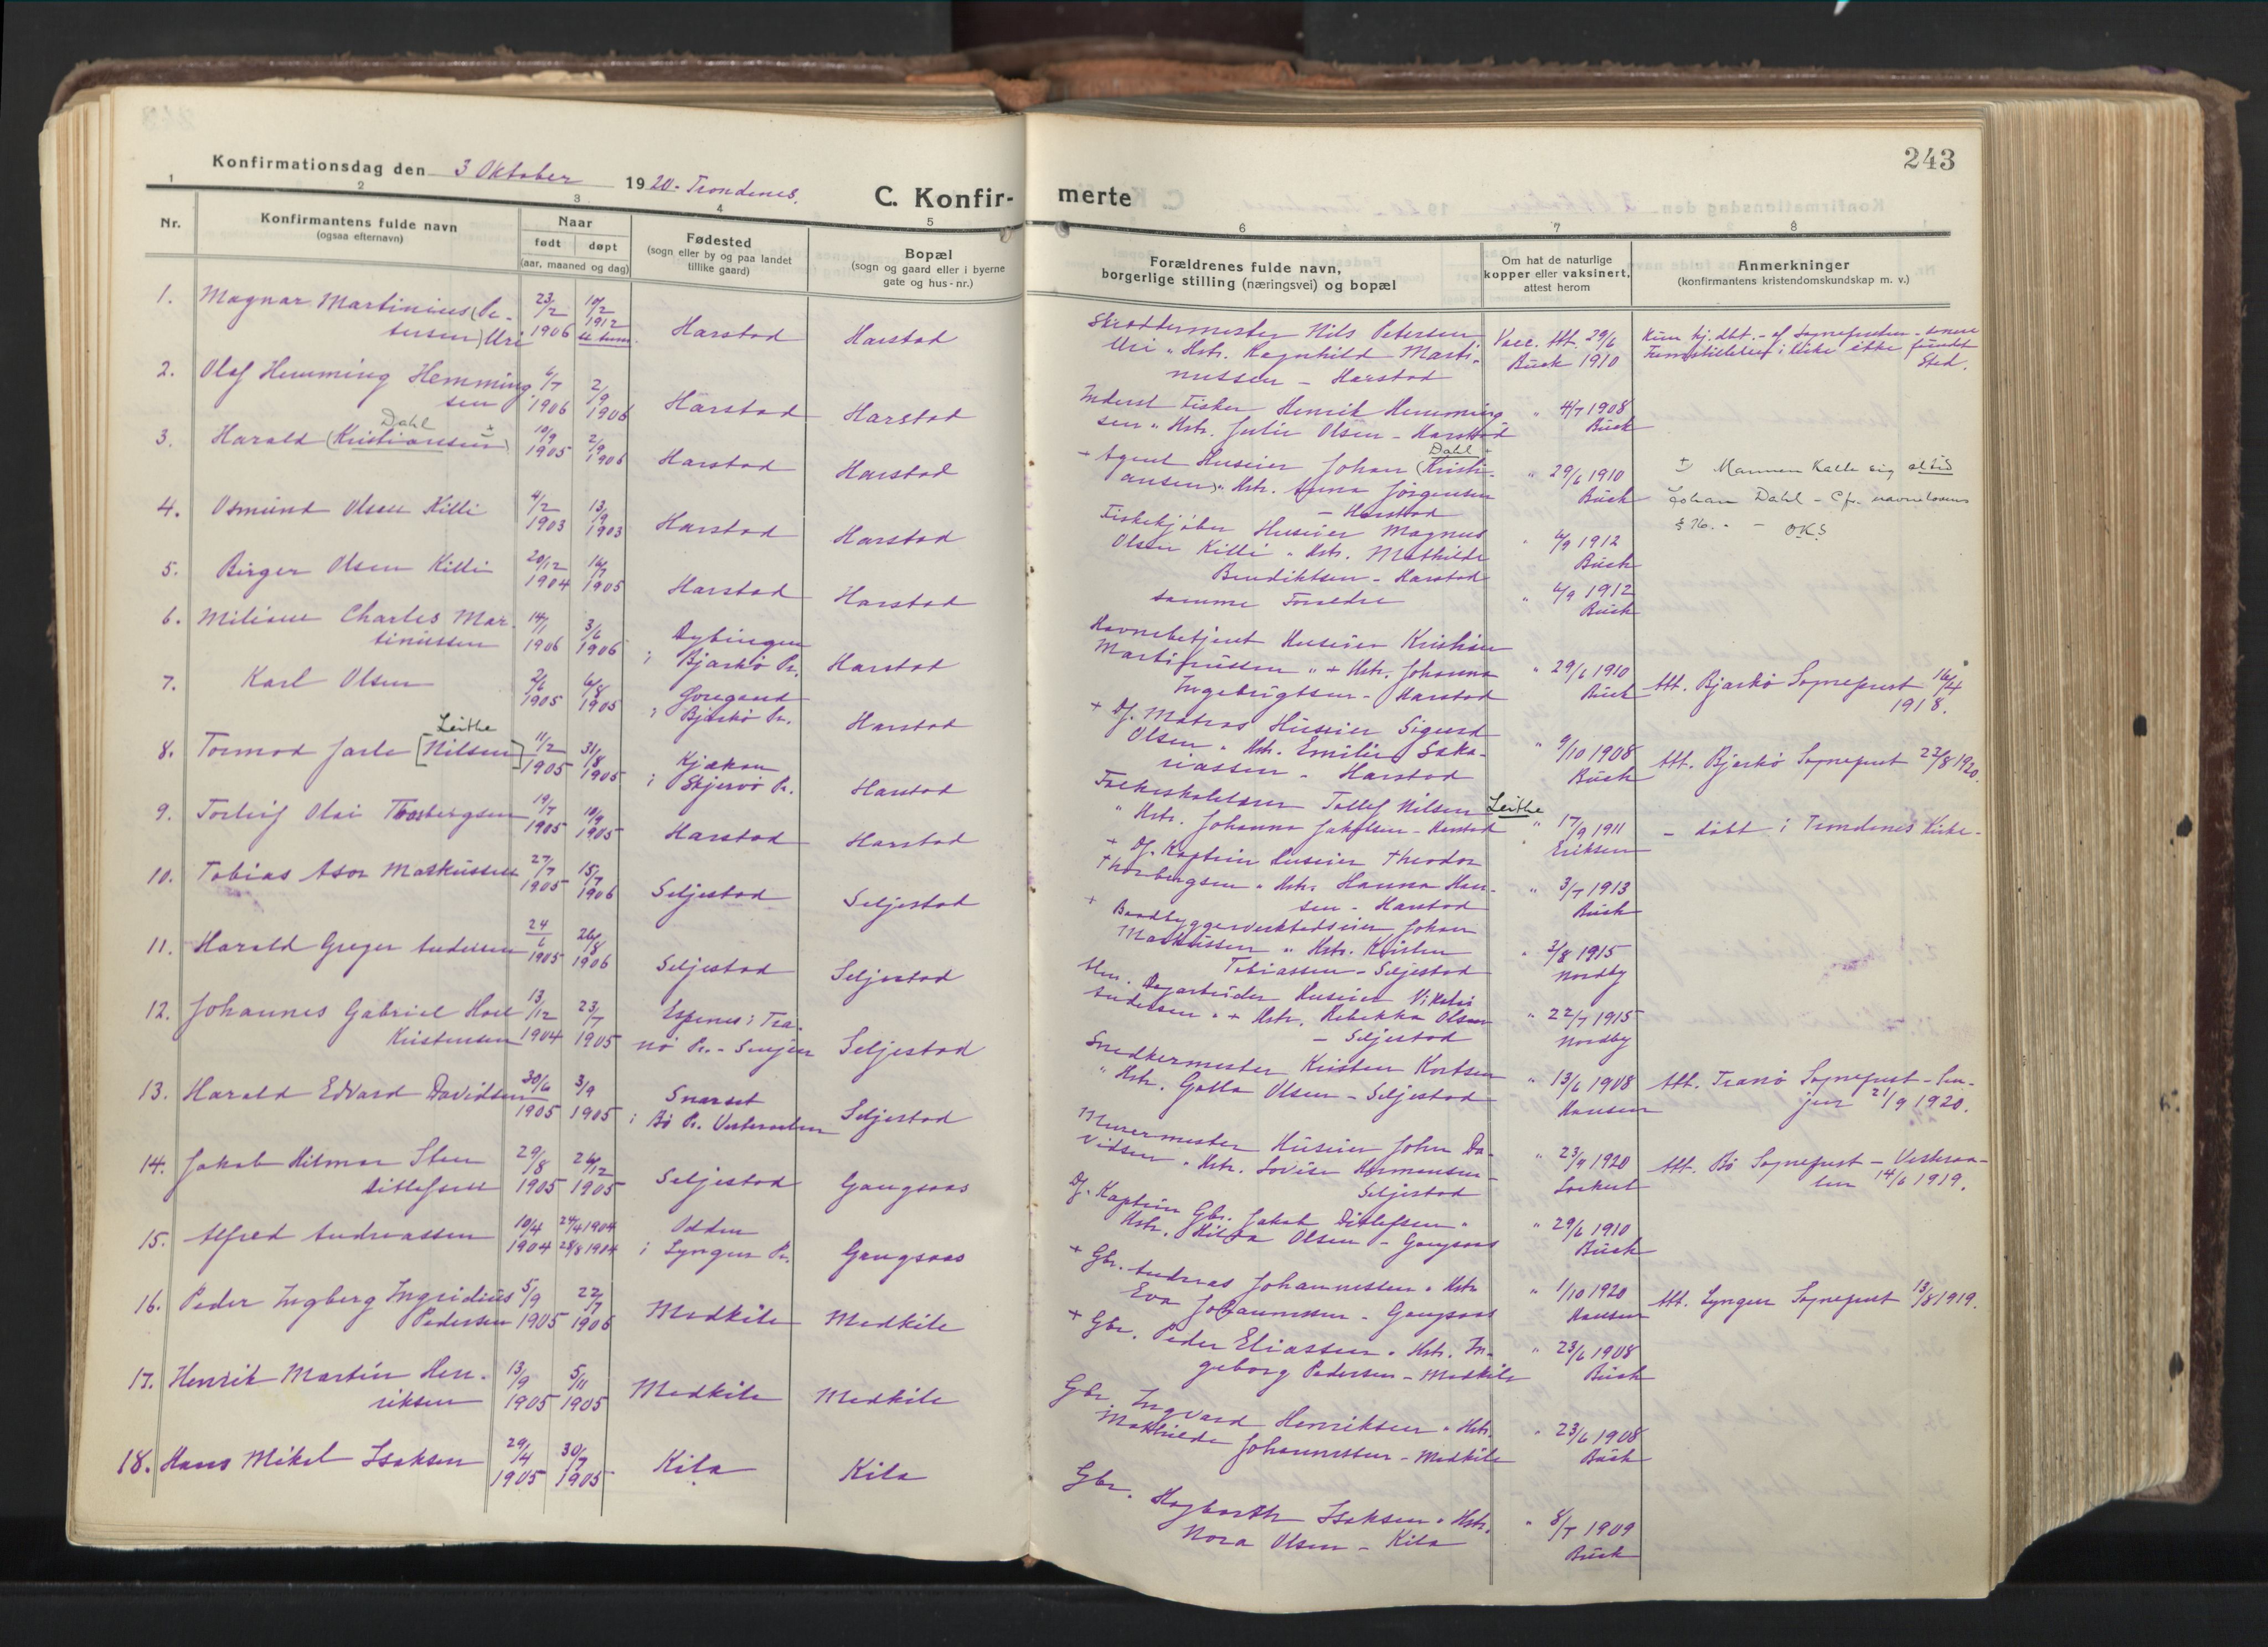 243
Konfirmationsdag den 3 Oktober 1920 - Trondenes.
C. Konfirmerte
1 2 3 4 5 6 7 8
Nr.
Konfirmantens fulde navn
(ogsaa efternavn)
Naar
født døpt
(aar, maaned og dag)
Fødested
(sogn eller by og paa landet
tillike gaard)
Bopæl
(sogn og gaard eller i byerne
gate og hus-nr.)
Forældrenes fulde navn,
borgerlige stilling (næringsvei) og bopæl
Om hat de naturlige
kopper eller vaksinert,
attest herom
Anmerkninger
(konfirmantens kristendomskundskap m. v.)
1. Magnar Martinius (Pe-
tersen) Uri
23/2 1906
10/2 1912
Harstad
Harstad
Skræddermester Nils Petersen
Uri " Hstr. Ragnhild Marti-
nussen - Harstad
Vacc. Att. 29/6
Buck 1910
Kun hj. dbt. - af Sognepresten - senere
Fremstillelse i Kirke ikke fundet
Sted.
2. Olaf Hemming Hemming
sen
6/7 1906
2/9 1906
Harstad
Harstad
Inderst Fisker Henrik Hemming
sen " Hstr. Julie Olsen - Harstad
" 4/7 1908
Buck
3. Harald (Kristiansen) Dahl +
10/9 1905
2/9 1906
Harstad
Harstad
+ Agent Huseier Johan (Kristi-
ansen) Dahl + " Hstr. Anna Jörgensen
- Harstad
" 29/6 1910
Buck
+) Mannen kalte sig altid
Johan Dahl - Cfr. navnelovens
§ 16. - OKS
4. Osmund Olsen Killi
4/2 1903
13/9 1903
Harstad
Harstad
Fiskekjøber Huseier Magnus
Olsen Killi " Hstr. Mathilde
Bendiktsen - Harstad
" 4/9 1912
Buck
5. Birger Olsen Killi
20/12 1904
16/7 1905
Harstad
Harstad
samme Forældre
" 4/9 1912
Buck
6. Milian Charles Mar-
tinussen
14/1 1906
3/6 1906
Dybingen
i Bjarkö Pr.
Harstad
Havnebetjent Huseier Kristian
Martinussen " + Hstr. Johanna
Ingebrigtsen - Harstad
" 29/6 1910
Buck
Att. Bjarkö Sogneprest 16/4
1918.
7. Karl Olsen
2/6 1905
6/8 1905
i Bjarkö Pr.
Harstad
+ Df. Matros Huseier Sigurd
Olsen " Hstr. Emilie Saka-
riassen - Harstad
" 9/10 1908
Buck
Att. Bjarkö Sogneprest 22/8 1920.
8. Tormod Jarle [Nilsen] Leithe
11/2 1905
31/8 1905
Kjækan
i Skjervö Pr.
Harstad
Folkeskolelærer Tollef Nilsen Leithe
" Hstr. Johanna Jakobsen - Harstad
" 17/9 1911
Eriksen
- döbt i Trondenes Kirke -
9. Torleif Olai Thorbergsen
19/7 1905
10/9 1905
Harstad
Harstad
+ Df. Kaptein Huseier Theodor
Thorbergsen " Hstr. Hanna Han-
sen - Harstad
" 3/7 1913
Buck
10. Tobias Asor Markussen
27/7 1905
15/7 1906
Seljestad
Seljestad
+ Baadbyggerverkstedseier Johan
Markussen " Hstr. Kirsten
Tobiassen - Seljestad
" 3/8 1915
Nordby
11. Harald Greger Andersen
24/6 1905
26/8 1906
Seljestad
Seljestad
Dagarbeider Huseier Vikelo
Andersen " + Hstr. Rebekka Olsen
- Seljestad
" 22/7 1915
Nordby
12. Johannes Gabriel Hoel
Kristensen
13/12 1904
23/7 1905
Espenes i Tra-
nö Pr. - Senjen
Seljestad
Snedkermester Kristen Kortsen
" Hstr. Galla Olsen - Seljestad
" 13/6 1908
Hansen
Att. Tranö Sogneprest - Sen-
jen 21/9 1920.
13. Harald Edvard Davidsen
30/6 1905
3/9 1905
Snarset
i Bö Pr. Vesteraalen
Seljestad
Murermester Huseier John Da-
vidsen " Hstr. Lovise Hermansen -
Seljestad
" 23/9 1920
Lockert
Att. Bö Sogneprest - Vesteraa-
len 14/6 1919.
14. Jakob Hilmar Sten
Ditlefsen
29/8 1905
26/12 1905
Seljestad
Gangsaas
Df. Kaptein Gbr. Jakob Ditlefsen "
Hstr. Hilda Olsen - Gangsaas
" 29/6 1910
Buck
15. Alfred Andreassen
10/4 1904
24/4 1904
28/8 1904
Odden
i Lyngen Pr.
Gangsaas
+ Gbr. Andreas Johannessen " Hstr.
Eva Johannessen - Gangsaas
" 1/10 1920
Hansen
Att. Lyngen Sogneprest 13/8 1919.
16. Peder Ingberg Ingridius
Pedersen
5/9 1905
22/7 1906
Medkile
Medkile
+ Gbr. Peder Eliassen " Hstr. In-
geborg Pedersen - Medkile
" 23/6 1908
Buck
17. Henrik Martin Hen-
riksen
13/9 1905
5/11 1905
Medkile
Medkile
Gbr. Ingvard Henriksen " Hstr.
Mathilde Johannessen - Medkile
" 23/6 1908
Buck
18. Hans Mikal Isaksen
29/4 1905
30/7 1905
Kila
Kila
Gbr. Hagbarth Isaksen " Hstr.
Nora Olsen - Kila
" 8/7 1909
Buck